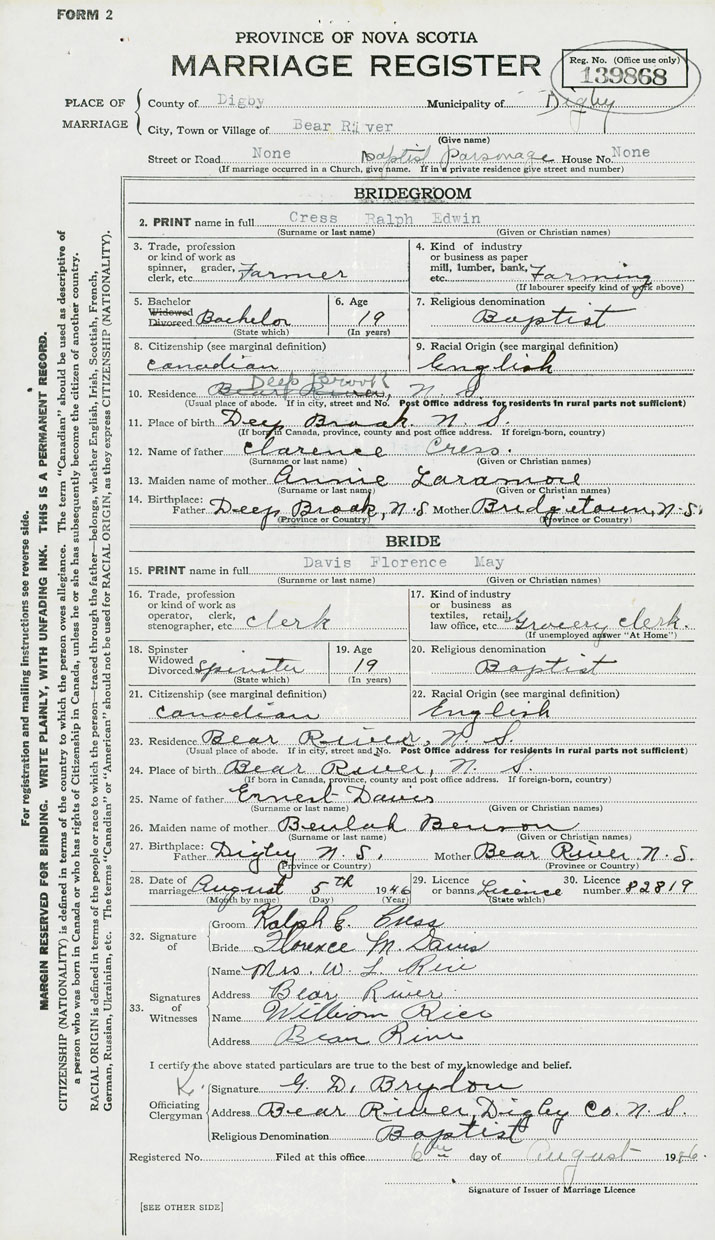 FORM 2
PROVINCE OF NOVA SCOTIA
MARRIAGE REGISTER
Reg. No. (Office use only)
139868
PLACE OF MARRIAGE
County of Digby Municipality of Digby
City, Town or Village of Bear River
(Give name)
Street or Road None Baptist Parsonage House No. None
(If marriage occurred in a Church, give name. If in a private residence give street and number)
BRIDEGROOM
2. PRINT name in full Cress Ralph Edwin
(Surname or last name) (Given or Christian names)
3. Trade, profession
or kind of work as
spinner, grader,
clerk, etc. Farmer
4. Kind of industry
or business as paper
mill, lumber, bank,
etc. Farming
(If labourer specify kind of work above)
5. Bachelor
Widowed
Divorced Bachelor
(State which)
6. Age
19
(In years)
7. Religious denomination
Baptist
8. Citizenship (see marginal definition)
Canadian
9. Racial Origin (see marginal definition)
English
Deep Brook
10. Residence Bear River, N. S.
(Usual place of abode. If in city, street and No. Post Office address for residents in rural parts not sufficient)
11. Place of birth Deep Brook N. S.
(If born in Canada, province, county and post office address. If foreign-born, country)
12. Name of father Clarence Cress.
(Surname or last name) (Given or Christian names)
13. Maiden name of mother Annie Laramore
(Surname or last name) (Given or Christian names)
14. Birthplace:
Father Deep Brook, N.S Mother Bridgetown, N.S.
(Province or Country) (Province or Country)
BRIDE
15. PRINT name in full Davis Florence May
(Surname or last name) (Given or Christian names)
16. Trade, profession
or kind of work as
operator, clerk,
stenographer, etc clerk
17. Kind of industry
or business as
textiles, retail,
law office, etc. Grocery clerk.
(If unemployed answer "At Home")
18. Spinster
Widowed
Divorced Spinster
(State which)
19. Age
19
(In years)
20. Religious denomination
Baptist
21. Citizenship (see marginal definition)
Canadian
22. Racial Origin (see marginal definition)
English
23. Residence Bear River, N. S.
(Usual place of abode. If in city, street and No. Post Office address for residents in rural parts not sufficient)
24. Place of birth Bear River, N. S.
(If born in Canada, province, county and post office address. If foreign-born, country)
25. Name of father Ernest Davis
(Surname or last name) (Given or Christian names)
26. Maiden name of mother Beulah Benson
(Surname or last name) (Given or Christian names)
27. Birthplace:
Father Digby N. S. Mother Bear River, N. S.
(Province or Country) (Province or Country)
28. Date of
marriage August 5th 1946
(Month by name) (Day) (Year)
29. Licence
or banns. Licence
(State which)
30. Licence
number 82819
32. Signature of
Groom Ralph E. Cress
Bride Florence M. Davis
33. Signatures of Witnesses
Name Mrs. W. L. Rice
Address Bear River
Name William Rice
Address Bear River
I certify the above stated particulars are true to the best of my knowledge and belief.
Officiating Clergyman
Signature G. D. Brydon
Address Bear River, Digby Co. N. S.
Religious Denomination Baptist
Registered No. Filed at this office 6th day of August 1946.
Signature of Issuer of Marriage Licence
[SEE OTHER SIDE]
For registration and mailing instructions see reverse side.
MARGIN RESERVED FOR BINDING. WRITE PLAINLY, WITH UNFADING INK. THIS IS A PERMANENT RECORD.
CITIZENSHIP (NATIONALITY) is defined in terms of the country to which the person owes allegiance. The term "Canadian" should be used as descriptive of
a person who was born in Canada or who has rights of Citizenship in Canada, unless he or she has subsequently become the citizen of another country.
RACIAL ORIGIN is defined in terms of the people or race to which the person—traced through the father—belongs, whether English, Irish, Scottish, French,
German, Russian, Ukrainian, etc. The terms "Canadian" or "American" should not be used for RACIAL ORIGIN, as they express CITIZENSHIP (NATIONALITY).